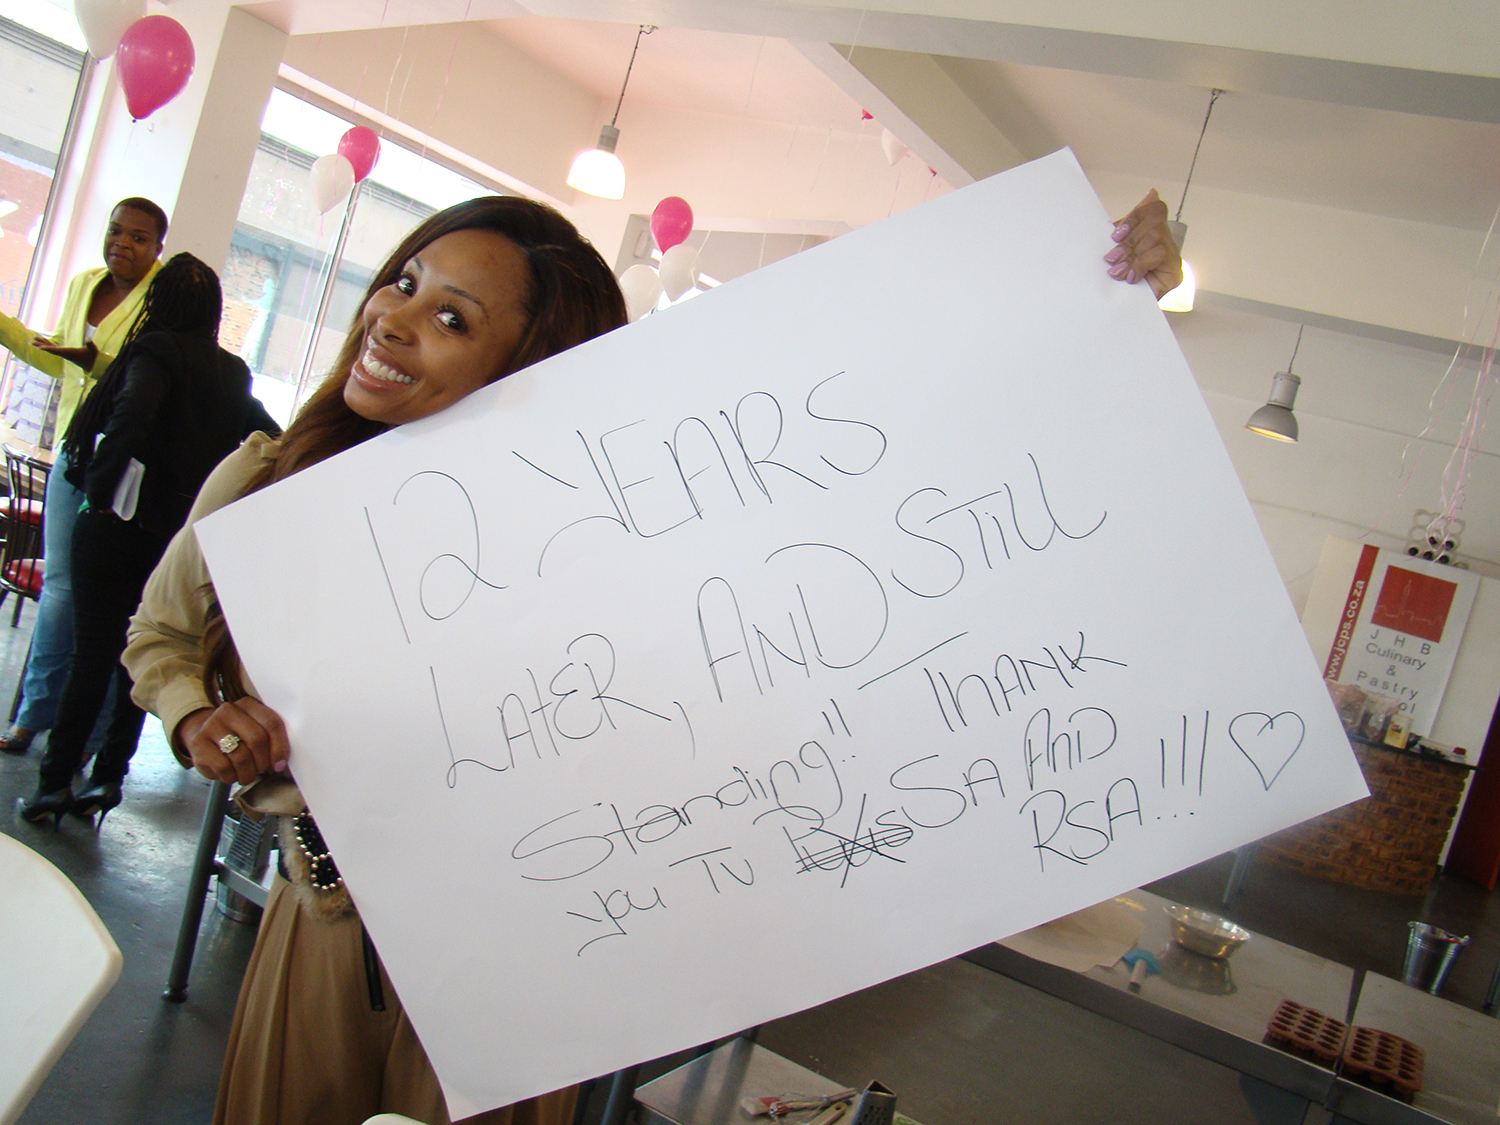 12 YEARS
LATER, AND STILL
Standing!! THANK
you TV SA AND
RSA!!!
www.jcps.co.za
JHB
Culinary
&
Pastry